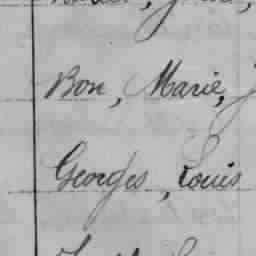 Bon, Marie,
Georges, Louis